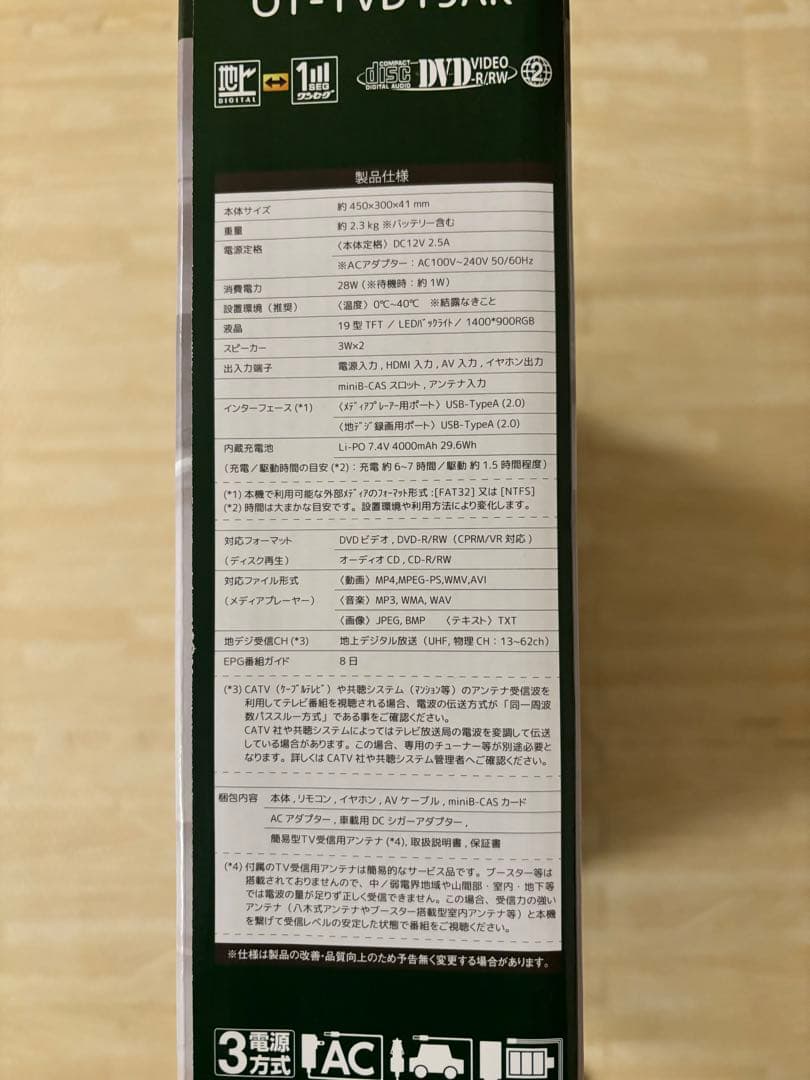 地上 DIGITAL
1SEG ワンセグ
COMPACT disc DIGITAL AUDIO
DVD VIDEO -R/RW
2
製品仕様
本体サイズ 約 450×300×41 mm
重量 約 2.3 kg ※バッテリー含む
電源定格 〈本体定格〉DC12V 2.5A
※ACアダプター：AC100V~240V 50/60Hz
消費電力 28W（※待機時：約1W）
設置環境（推奨） 〈温度〉0℃~40℃ ※結露なきこと
液晶 19 型 TFT / LEDﾊﾞｯｸﾗｲﾄ / 1400*900RGB
スピーカー 3W×2
出入力端子 電源入力 , HDMI 入力 , AV 入力 , イヤホン出力
miniB-CAS スロット , アンテナ入力
インターフェース (*1) 〈ﾒﾃﾞｨｱﾌﾟﾚｰﾔｰ用ポート〉USB-TypeA (2.0)
〈地デジ録画用ポート〉USB-TypeA (2.0)
内蔵充電池 Li-PO 7.4V 4000mAh 29.6Wh
（充電 / 駆動時間の目安 (*2)：充電 約 6~7 時間 / 駆動 約 1.5 時間程度）
(*1) 本機で利用可能な外部ﾒﾃﾞｨｱのﾌｫｰﾏｯﾄ形式 :[FAT32] 又は [NTFS]
(*2) 時間は大まかな目安です。設置環境や利用方法により変化します。
対応フォーマット DVD ビデオ , DVD-R/RW（CPRM/VR 対応）
（ディスク再生） オーディオ CD , CD-R/RW
対応ファイル形式 〈動画〉MP4,MPEG-PS,WMV,AVI
（メディアプレーヤー） 〈音楽〉MP3, WMA, WAV
〈画像〉JPEG, BMP 〈テキスト〉TXT
地デジ受信CH (*3) 地上デジタル放送（UHF, 物理 CH：13~62ch）
EPG番組ガイド 8 日
(*3) CATV（ｹｰﾌﾞﾙﾃﾚﾋﾞ）や共聴システム（ﾏﾝｼｮﾝ等）のアンテナ受信波を
利用してテレビ番組を視聴される場合、電波の伝送方式が「同一周波
数パススルー方式」である事をご確認ください。
CATV 社や共聴システムによってはテレビ放送局の電波を変調して伝送
している場合があります。この場合、専用のチューナー等が別途必要と
なります。詳しくは CATV 社や共聴システム管理者へご確認ください。
梱包内容 本体 , リモコン , イヤホン , AV ケーブル , miniB-CAS カード
AC アダプター , 車載用 DC シガーアダプター ,
簡易型TV受信用アンテナ (*4), 取扱説明書 , 保証書
(*4) 付属のTV受信用アンテナは簡易的なサービス品です。ブースター等は
搭載されておりませんので、中 / 弱電界地域や山間部・室内・地下等
では電波の量が足りず正しく受信できません。この場合、受信力の強い
アンテナ（八木式アンテナやブースター搭載型室内アンテナ等）と本機
を繋げて受信レベルの安定した状態で番組をご視聴ください。
※仕様は製品の改善・品質向上のため予告無く変更する場合があります。
3電源方式
AC